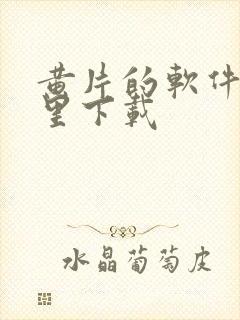 黄片的軟件
里下載
水晶葡萄皮